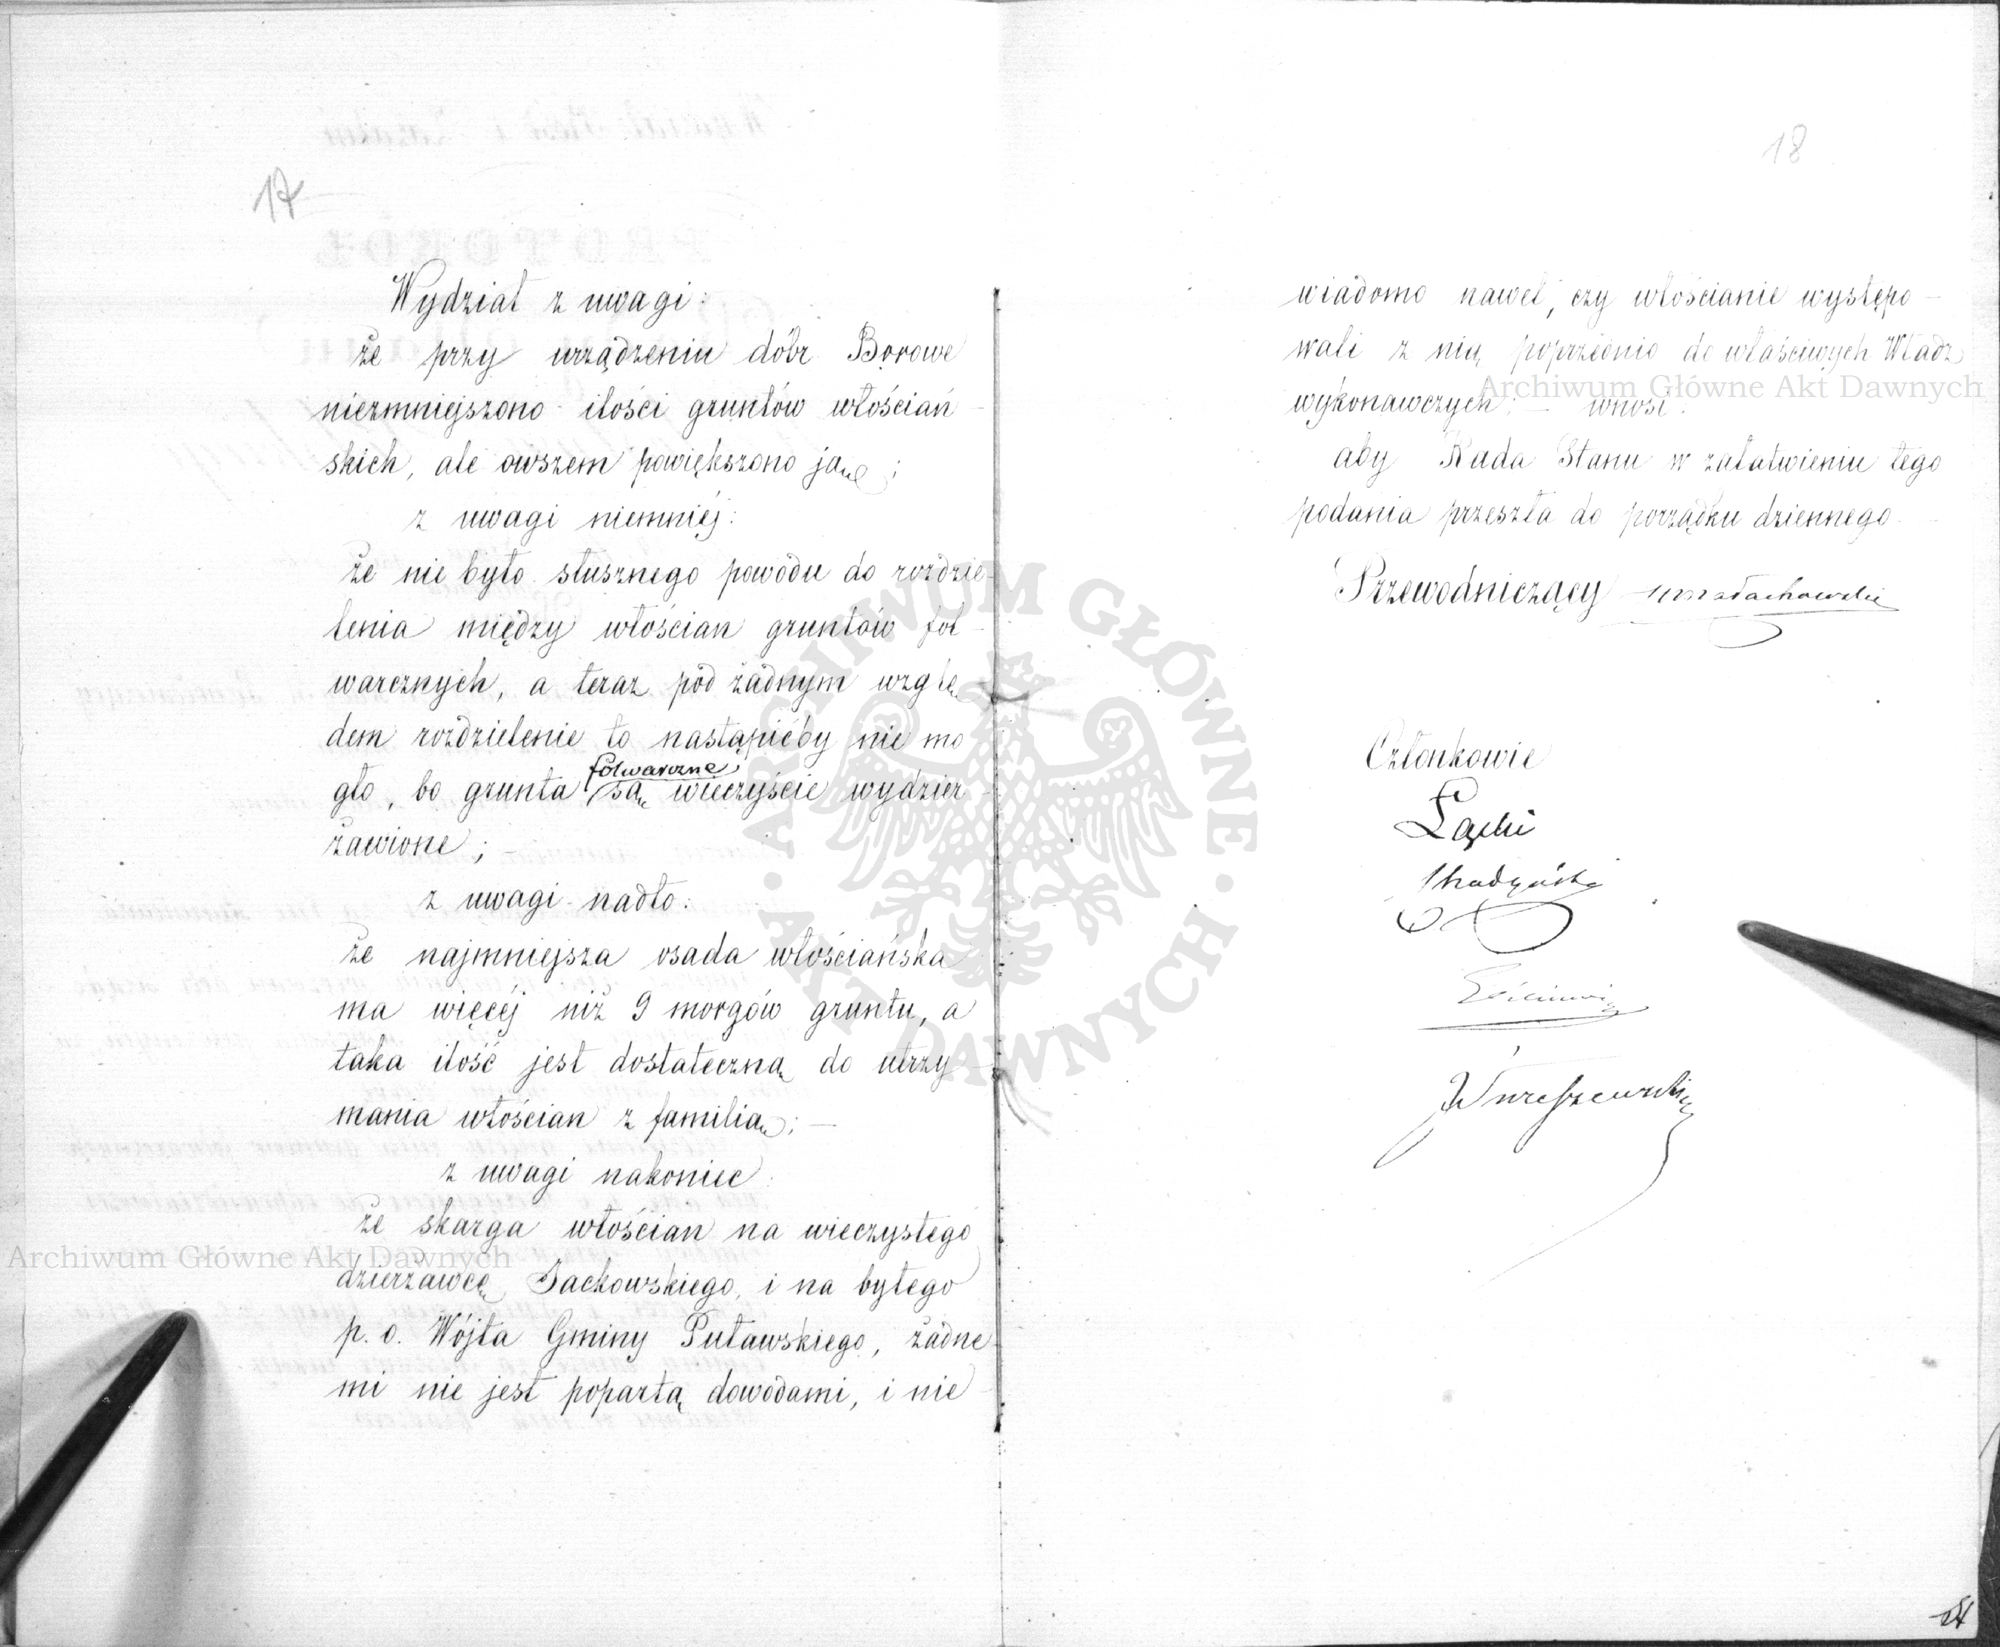 17
Wydział z uwagi:
że przy urządzeniu dóbr Borowe
niezmniejszono ilości gruntów włościań
skich, ale owszem powiększono ją;
z uwagi niemniéj:
że nie było słusznego powodu do rozdzie-
lenia między włościan gruntów fol-
warcznych, a teraz pod żadnym wzglę
dem rozdzielenie to nastąpićby nie mo
gło, bo grunta folwarczne są wieczyście wydzier-
żawione; -
z uwagi nadto:
że najmniejsza osada włościańska
ma więcéj niż 9 morgów gruntu, a
taka ilość jest dostateczną do utrzy-
mania włościan z familią; -
z uwagi nakoniec:
że skarga włościan na wieczystego
dzierżawcę Jackowskiego, i na byłego
p. o. Wójta Gminy Puławskiego, żadne-
mi nie jest popartą dowodami, i nie-
18
wiadomo nawet, czy włościanie występo-
wali z nią poprzednio do właściwych Władz
wykonawczych; - wnosi:
aby Rada Stanu w załatwieniu tego
podania przeszła do porządku dziennego.
Przewodniczący Małachowski
Członkowie
Łącki
Wureszewski
Archiwum Główne Akt Dawnych
Archiwum Główne Akt Dawnych
ARCHIWUM GŁÓWNE
AKT DAWNYCH